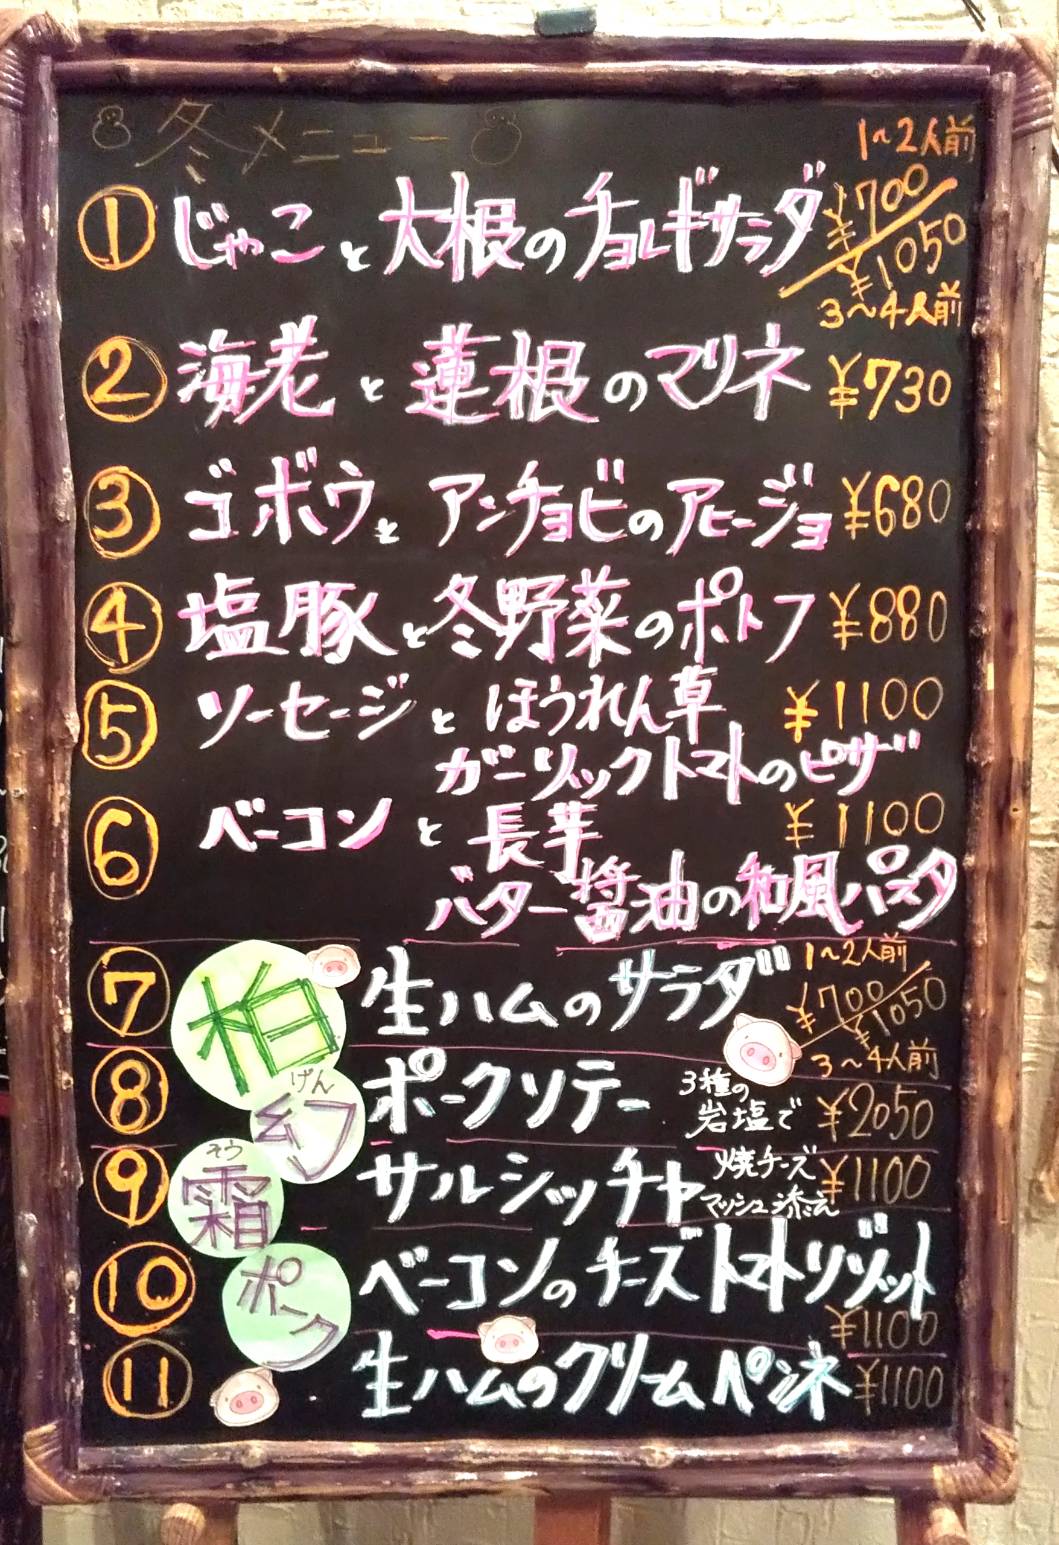 冬メニュー
1~2人前
① じゃこと大根のチョレギサラダ ¥700/¥1050
3~4人前
② 海老と蓮根のマリネ ¥730
③ ゴボウとアンチョビのアヒージョ ¥680
④ 塩豚と冬野菜のポトフ ¥880
⑤ ソーセージとほうれん草 ¥1100
ガーリックトマトのピザ
⑥ ベーコンと長芋 ¥1100
バター醤油の和風パスタ
1~2人前
⑦ 生ハムのサラダ ¥700/¥1050
3~4人前
⑧ ポークソテー 3種の岩塩で ¥2050
⑨ サルシッチャ 焼チーズマッシュ添え ¥1100
⑩ ベーコンのチーズトマトリゾット
¥1100
⑪ 生ハムのクリームペンネ ¥1100
柏
げん
幻
そう
霜
ポーク